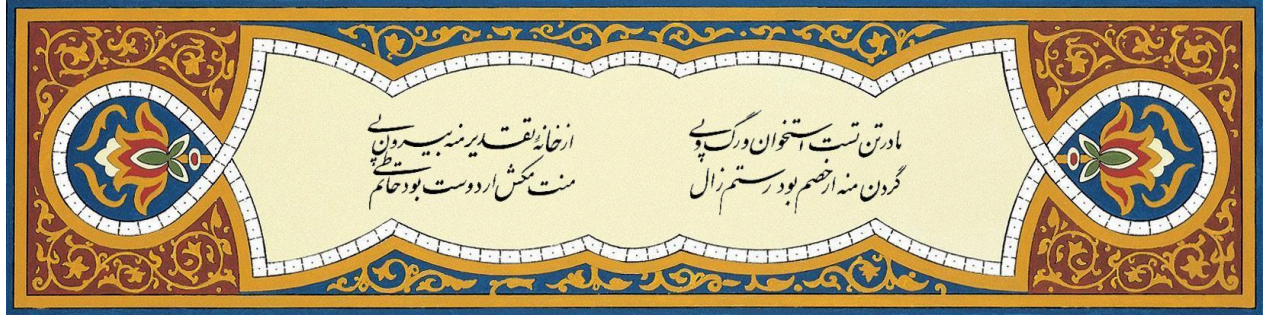 مادر تن تست استخوان و رگ و پی
از خانهٔ تقدیر منه بیرون پی
گردن منه ار خصم بود رستم زال
منت مکش ار دوست بود حاتم طی